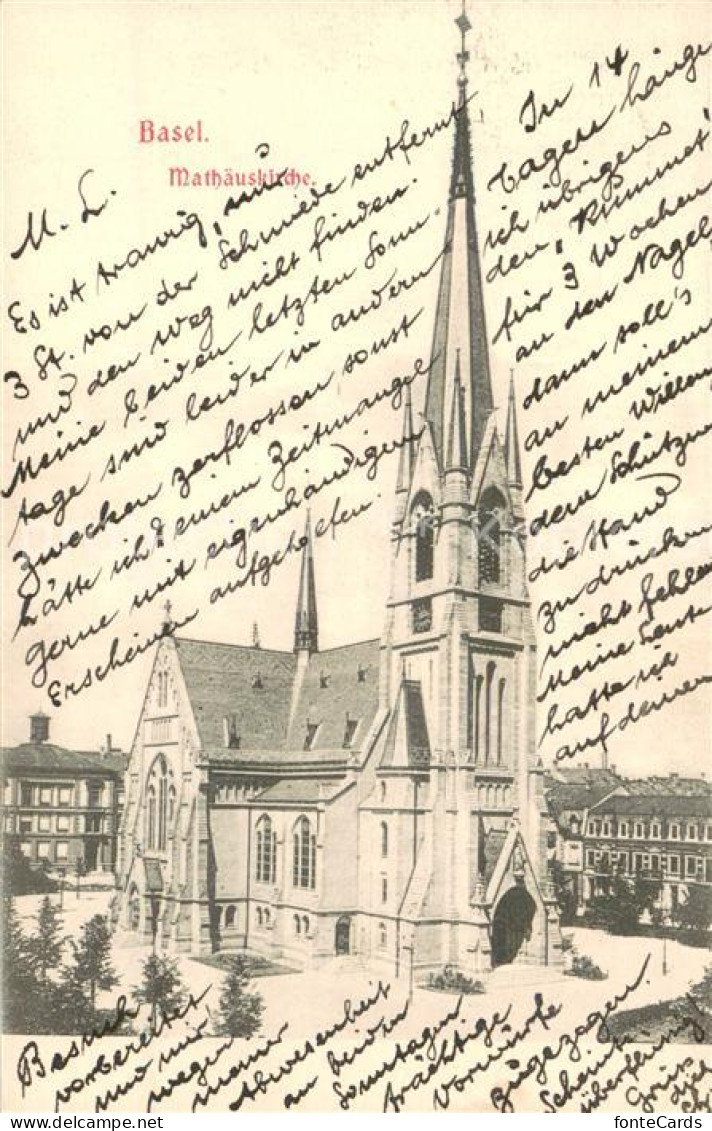 Basel.
Mathäuskirche.
M. L.
Es ist traurig, nur
3 St. von der Schmiede entfernt
und den Weg nicht finden.
Meine beiden letzten Sonn-
tage sind leider in andern
Zwecken zerflossen sonst
hätte ich einem Zeitmangel
gerne mit eigenhändigem
Erscheinen aufgeholfen.
In 14
Tagen hänge
ich übrigens
den "Kummet"
für 3 Wochen
an den Nagel,
dann soll's
an meinem
besten Willen
dem Schützen
die Hand
zu drücken
nicht fehlen.
Meine Leute
hatte ich
auf deinen
Besuch
vorbereitet
und mir
wegen
meiner
Abwesenheit
an beiden
Sonntagen
trächtige
Vorwürfe
zugezogen.
überflüssig!
Gruss
fonteCards